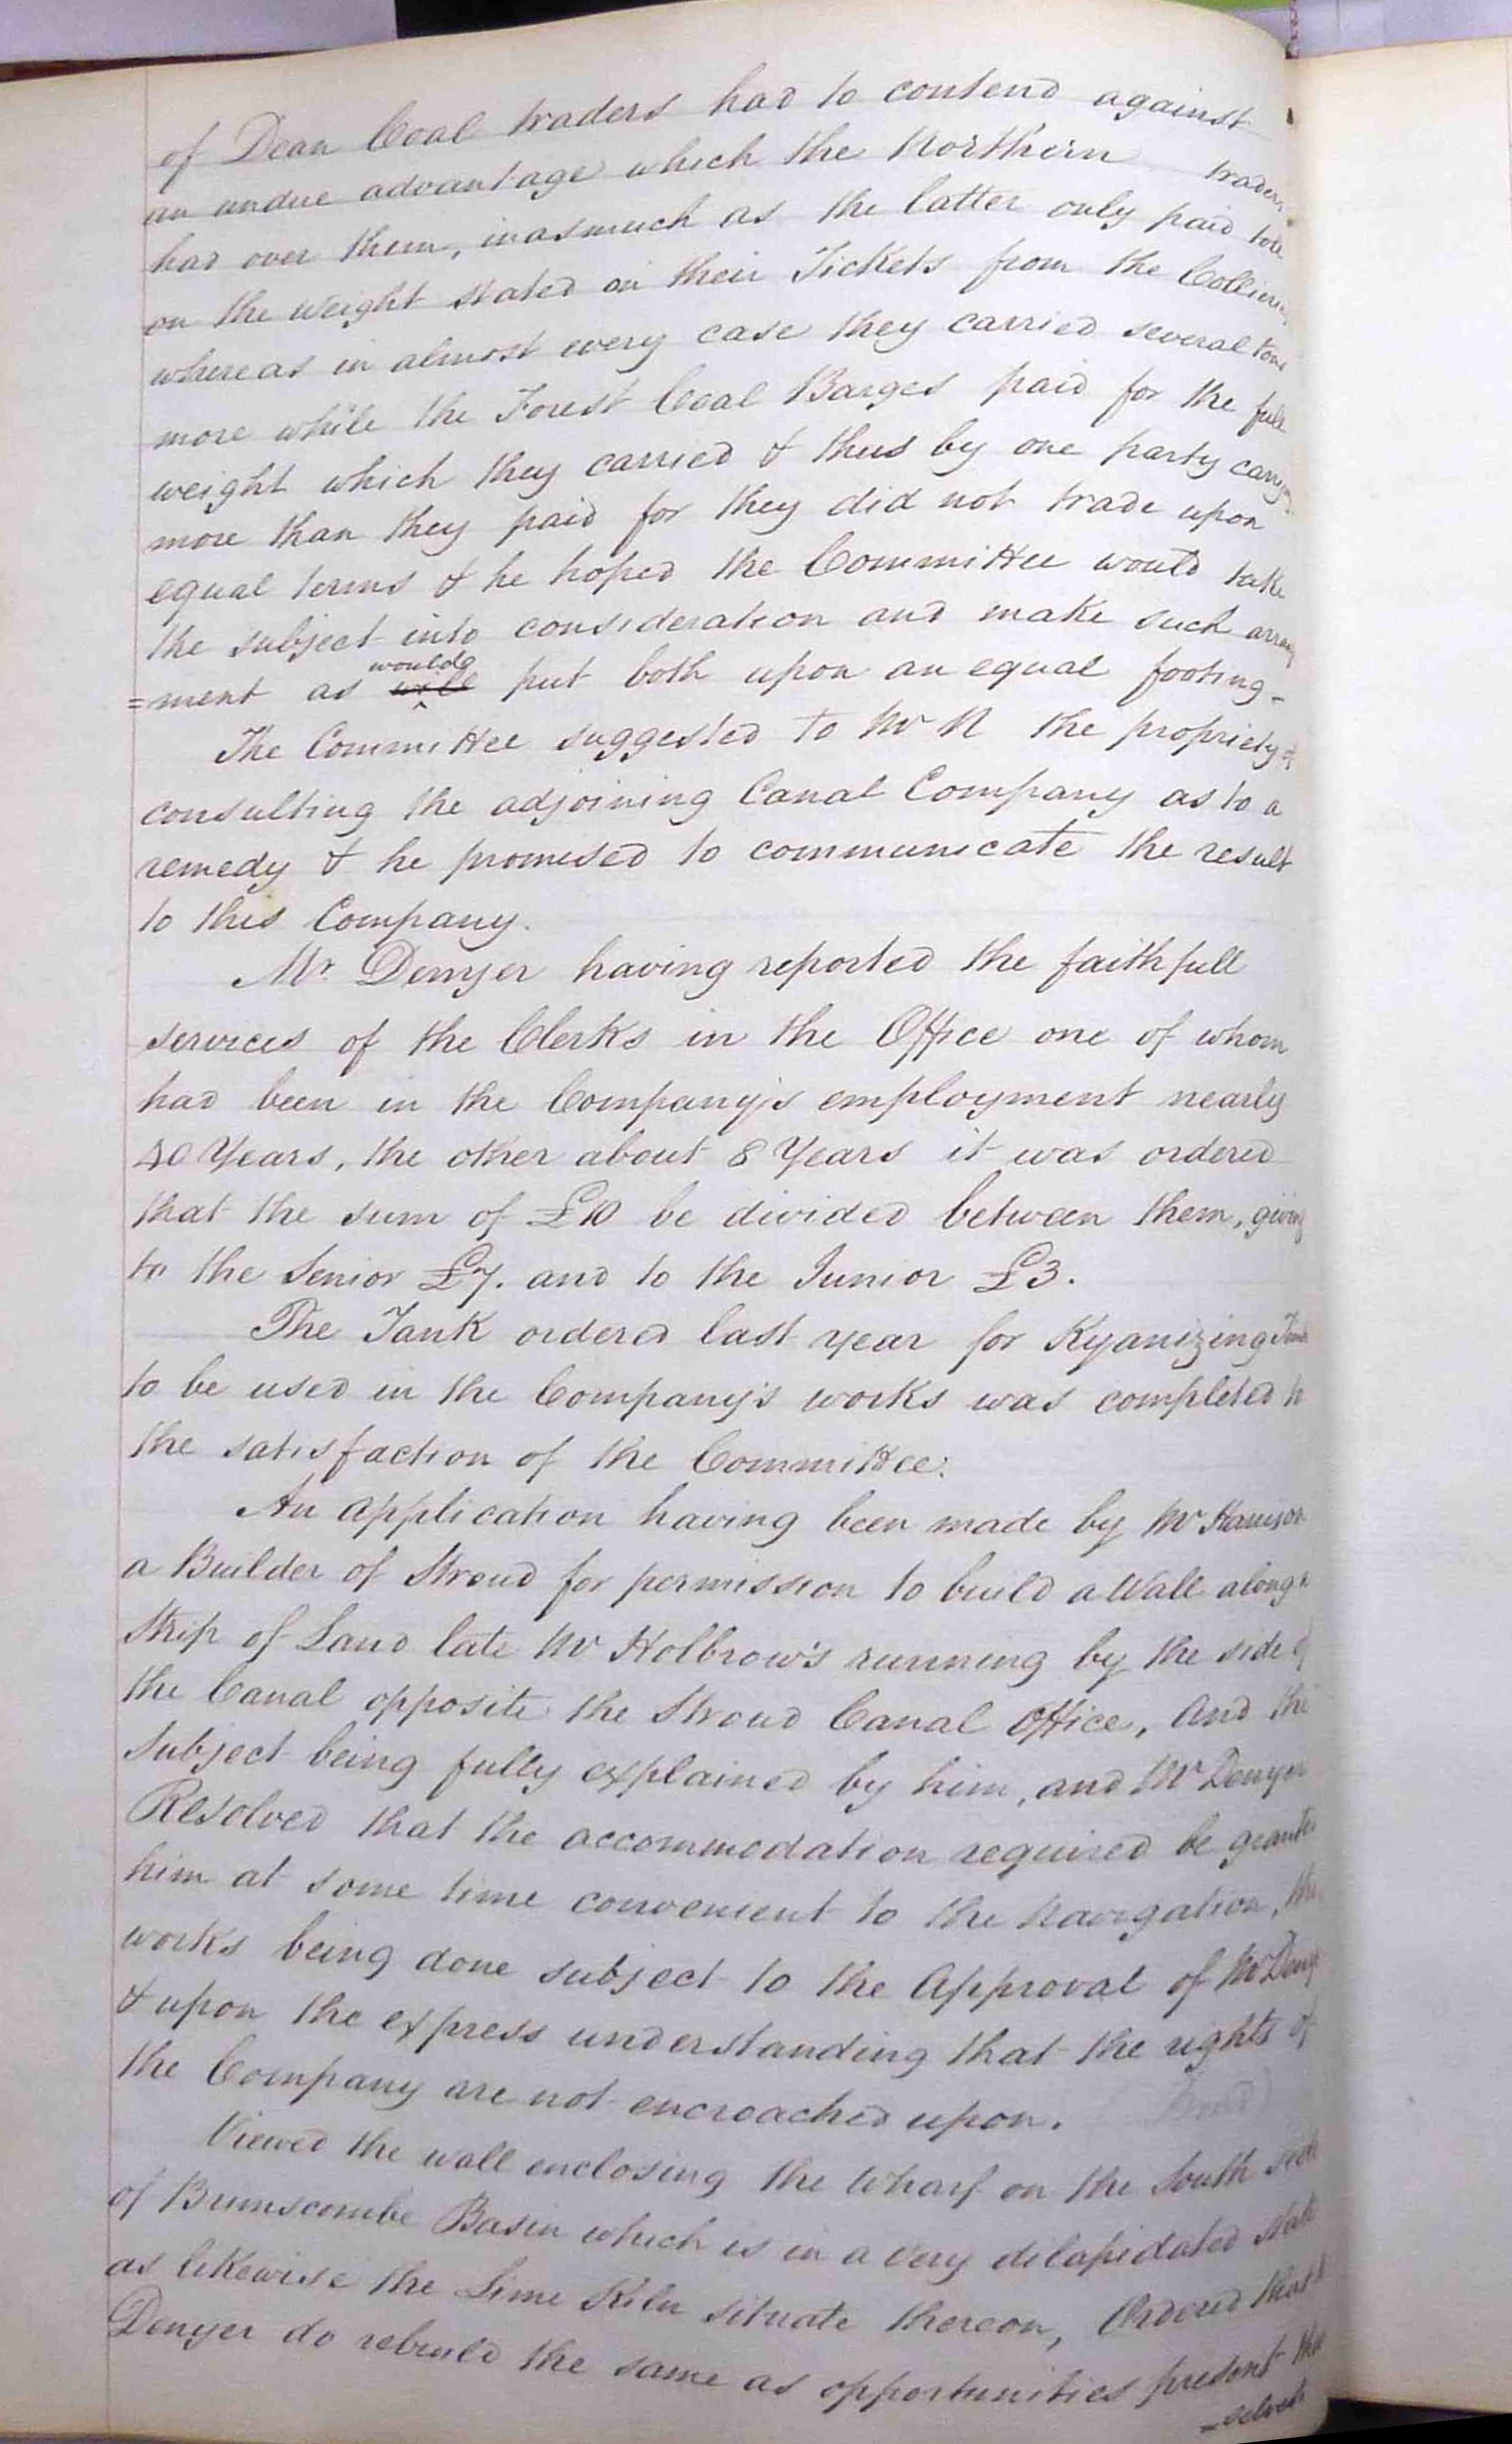 of Dean Coal traders had to contend against
an undue advantage which the Northern traders
had over them, inasmuch as the latter only paid tolls
on the weight stated on their Tickets from the Collieries
whereas in almost every case they carried several tons
more while the Forest Coal Barges paid for the full
weight which they carried & thus by one party carrying
more than they paid for they did not trade upon
equal terms & he hoped the Committee would take
the subject into consideration and make such arrang
=ment as will would put both upon an equal footing -
The Committee suggested to Mr N the propriety of
consulting the adjoining Canal Company as to a
remedy & he promised to communicate the result
to this Company.
Mr. Denyer having reported the faithfull
services of the Clerks in the Office one of whom
had been in the Company's employment nearly
40 Years, the other about 8 Years it was ordered
that the sum of £10 be divided between them, giving
to the Senior £7. and to the Junior £3.
The Tank ordered last year for Kyanizing
to be used in the Company's works was completed to
the satisfaction of the Committee.
An application having been made by Mr Harrison
a Builder of Stroud for permission to build a Wall along a
Strip of Land late Mr Holbrow's running by the side of
the Canal opposite the Stroud Canal Office, And the
Subject being fully explained by him, and Mr Denyer
Resolved that the accommodation required be granted
him at some time convenient to the Navigation, the
works being done subject to the Approval of Mr Denyer
& upon the express understanding that the rights of
the Company are not encroached upon.
Viewed the wall enclosing the Wharf on the South side
of Brimscombe Basin which is in a very dilapidated state
as likewise the Lime Kiln situate thereon, Ordered that Mr
Denyer do rebuild the same as opportunities present them
=selves